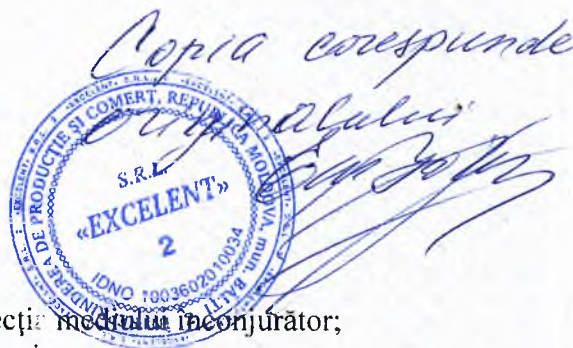 Copia corespunde
originalului
ÎNTREPRINDEREA DE PRODUCȚIE ȘI COMERȚ, REPUBLICA MOLDOVA, mun. BĂLȚI
S.R.L.
«EXCELENT»
2
IDNO 1003602010034
ecția mediului înconjurător;